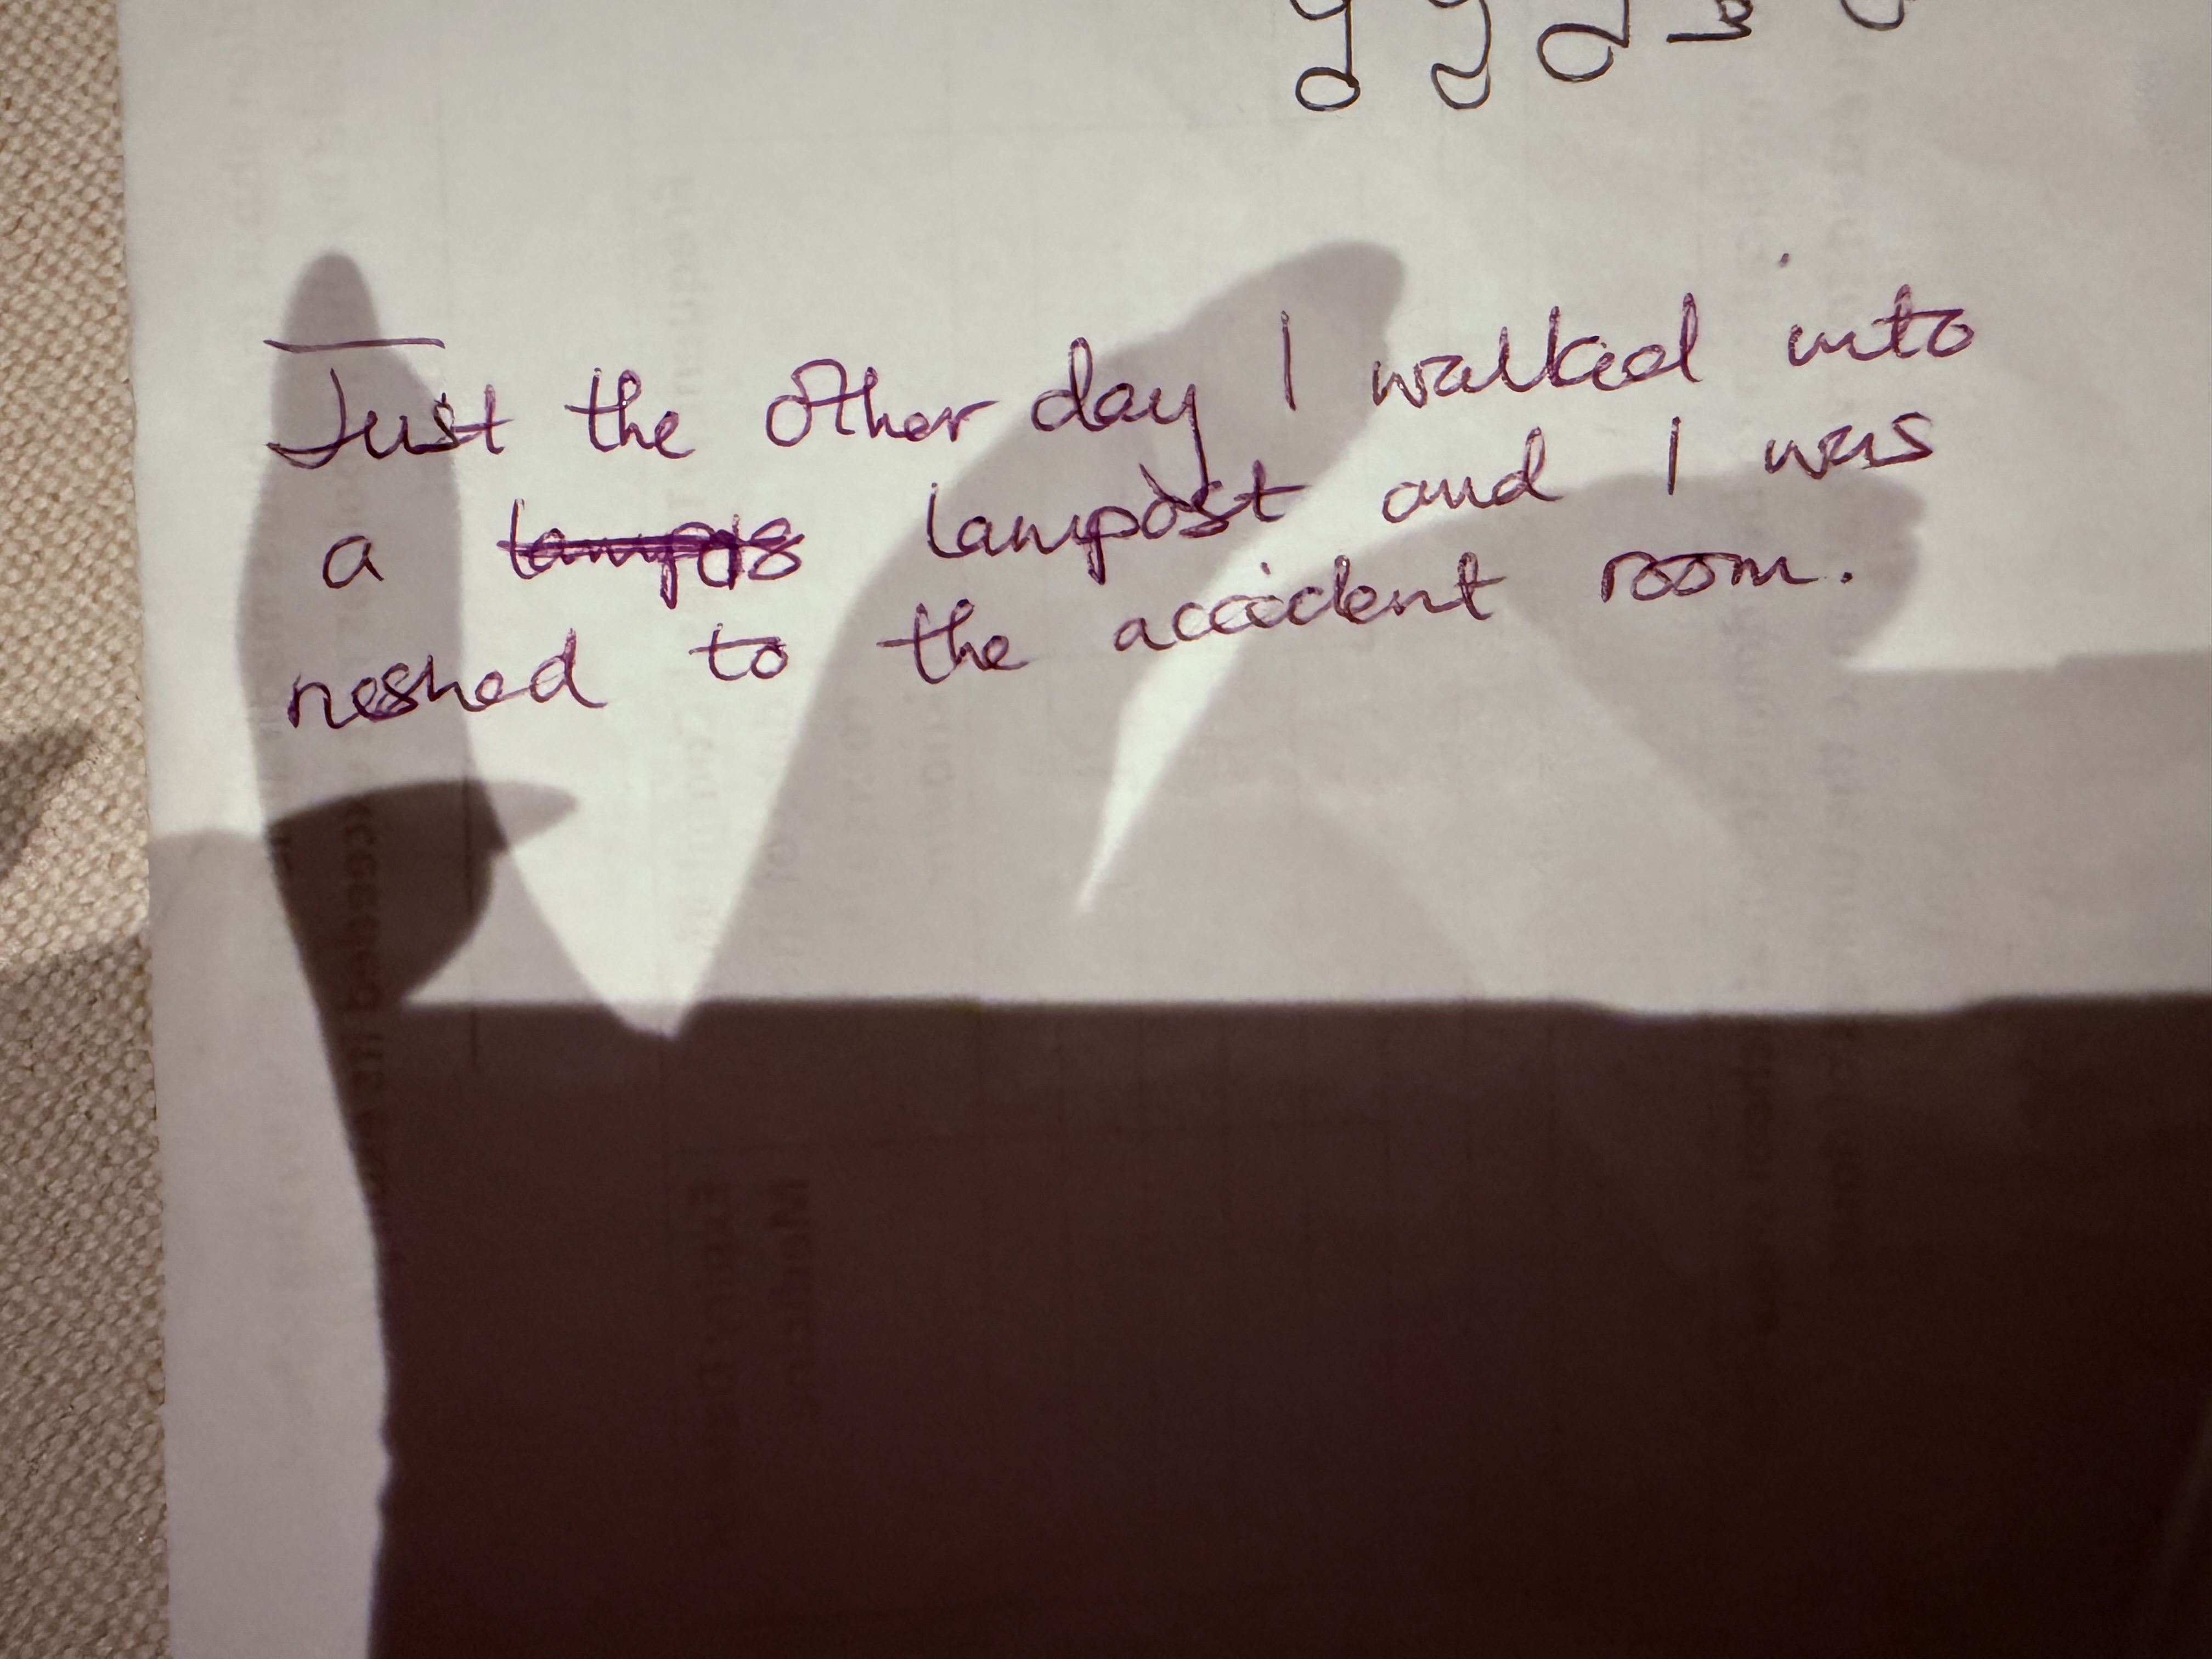 Just the other day I walked into
a lampost and I was
rushed to the accident room.